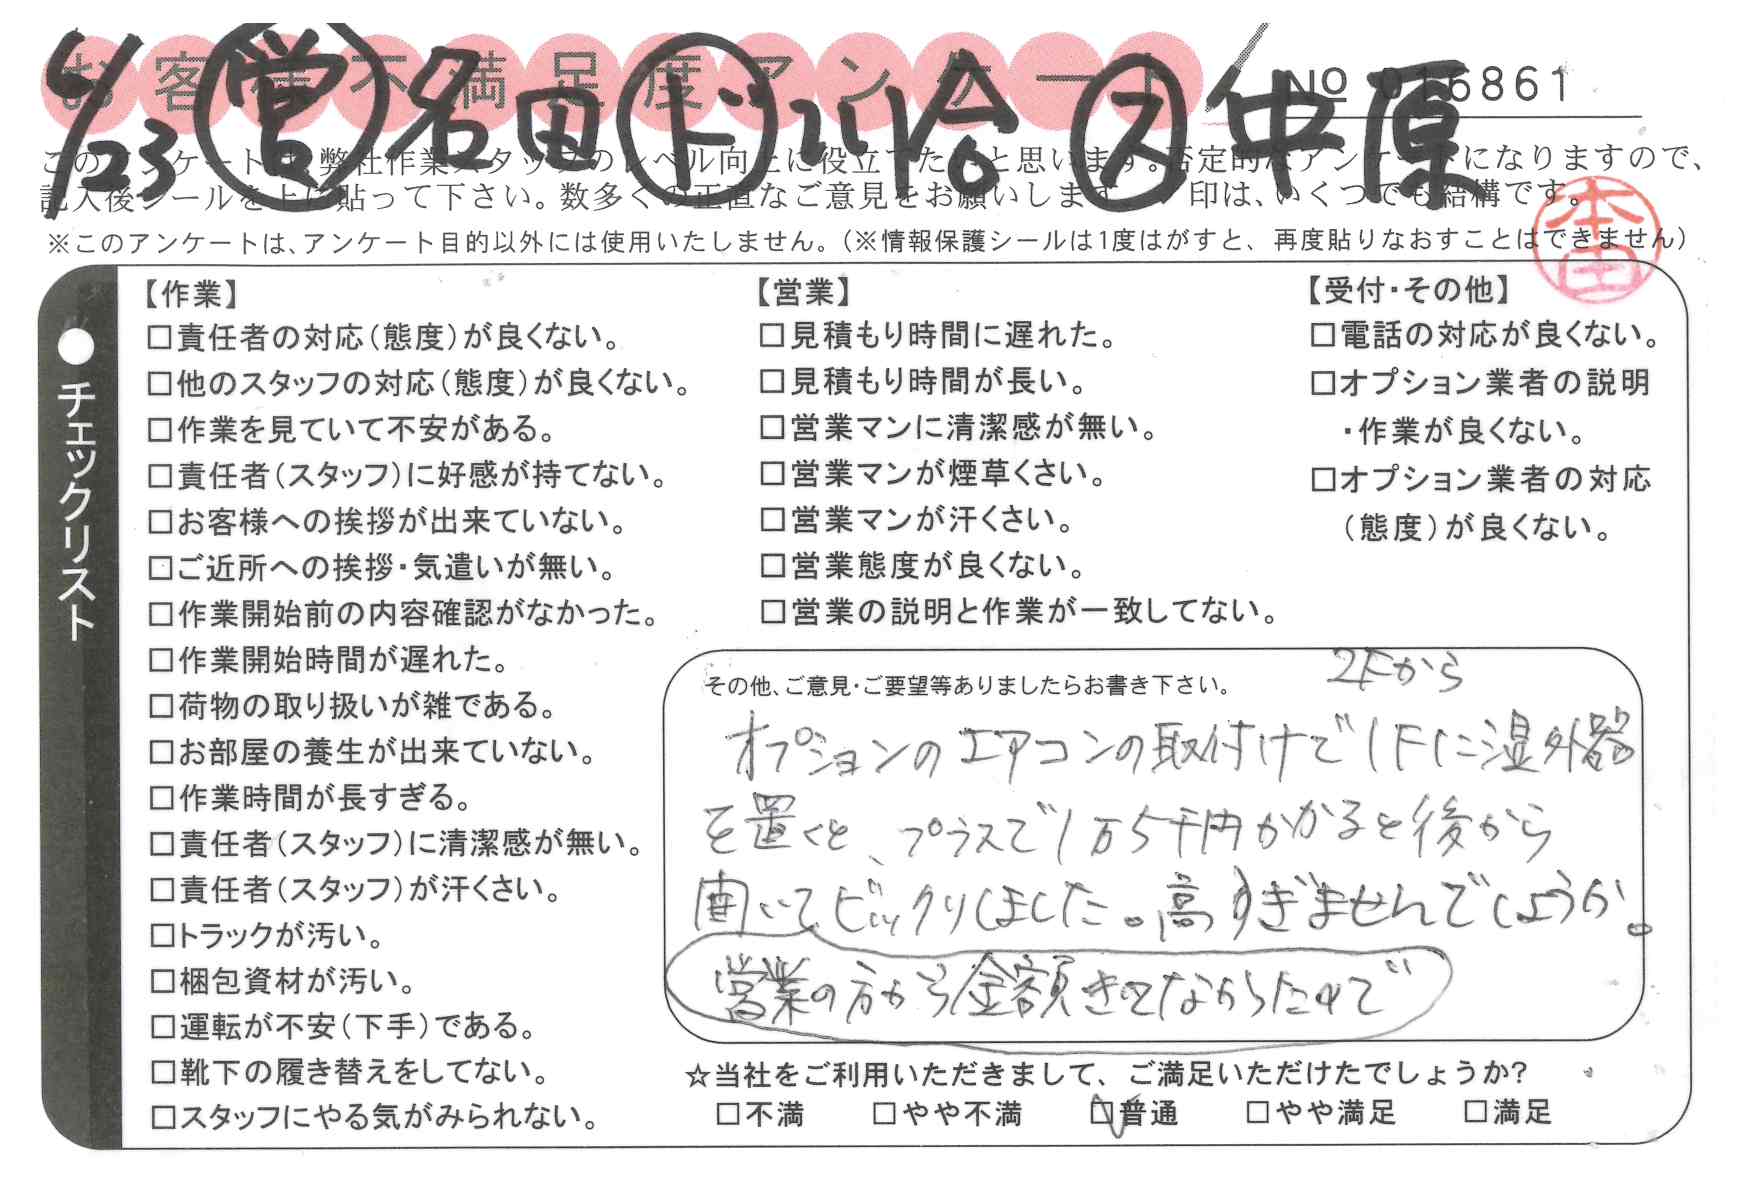 お客様不満足度アンケート
NO 016861
6/23 営 名田 ド 河合 ス 中原
このアンケートは、弊社作業スタッフのレベル向上に役立てたいと思います。否定的なアンケートになりますので、
記入後シールを上に貼って下さい。数多くの正直なご意見をお願いします。✓印は、いくつでも結構です。
※このアンケートは、アンケート目的以外には使用いたしません。(※情報保護シールは1度はがすと、再度貼りなおすことはできません)
本田
●チェックリスト
【作業】
□責任者の対応(態度)が良くない。
□他のスタッフの対応(態度)が良くない。
□作業を見ていて不安がある。
□責任者(スタッフ)に好感が持てない。
□お客様への挨拶が出来ていない。
□ご近所への挨拶・気遣いが無い。
□作業開始前の内容確認がなかった。
□作業開始時間が遅れた。
□荷物の取り扱いが雑である。
□お部屋の養生が出来ていない。
□作業時間が長すぎる。
□責任者(スタッフ)に清潔感が無い。
□責任者(スタッフ)が汗くさい。
□トラックが汚い。
□梱包資材が汚い。
□運転が不安(下手)である。
□靴下の履き替えをしてない。
□スタッフにやる気がみられない。
【営業】
□見積もり時間に遅れた。
□見積もり時間が長い。
□営業マンに清潔感が無い。
□営業マンが煙草くさい。
□営業マンが汗くさい。
□営業態度が良くない。
□営業の説明と作業が一致してない。
【受付・その他】
□電話の対応が良くない。
□オプション業者の説明
・作業が良くない。
□オプション業者の対応
(態度)が良くない。
その他、ご意見・ご要望等ありましたらお書き下さい。
2Fから
オプションのエアコンの取付けで1Fに湿外器
を置くと、プラスで1万5千円かかると後から
聞いてビックリしました。高すぎませんでしょうか。
営業の方から金額きてなかったので
☆当社をご利用いただきまして、ご満足いただけたでしょうか?
□不満 □やや不満 ☑普通 □やや満足 □満足